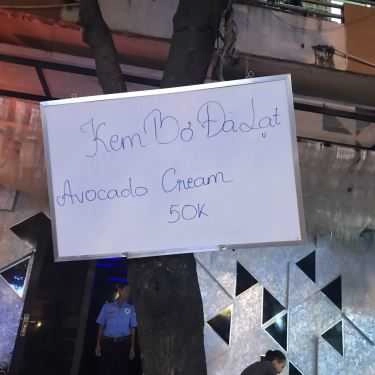 Kem Bơ Đà Lạt
Avocado Cream
50K